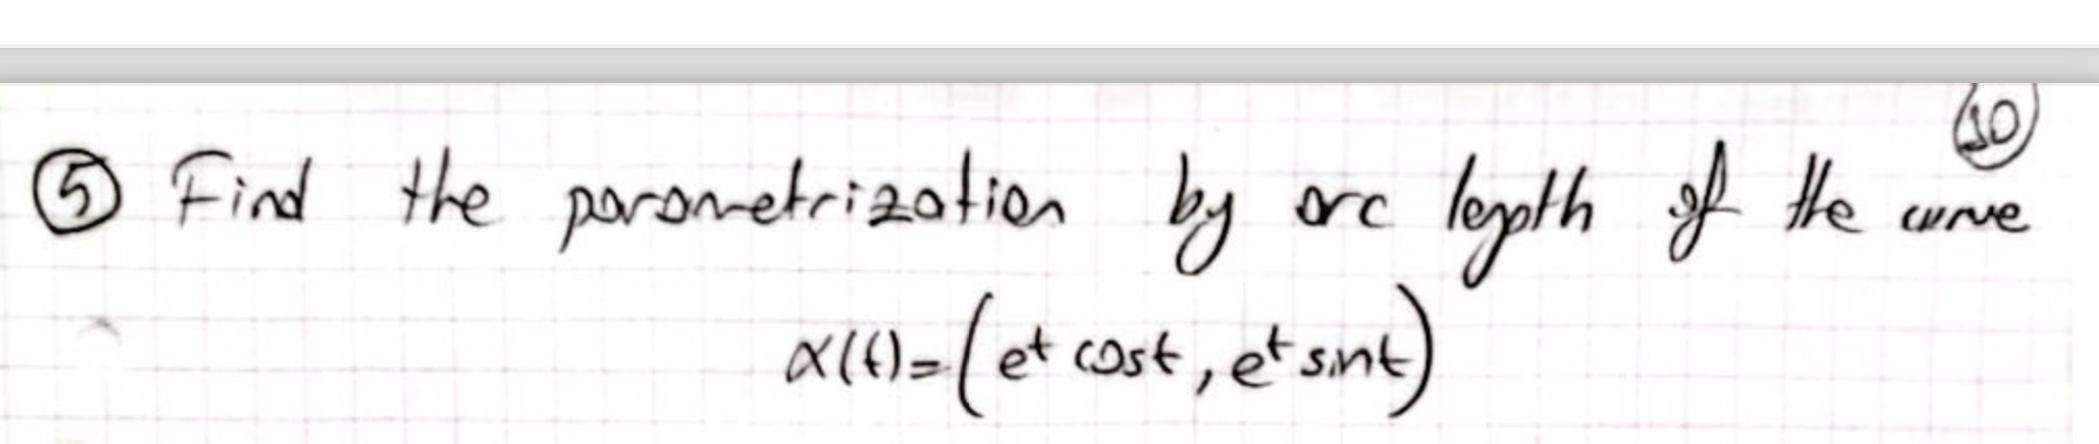 10
5 Find the parametrization by arc length of the curve
α(t)=(e^t cost, e^t sint)